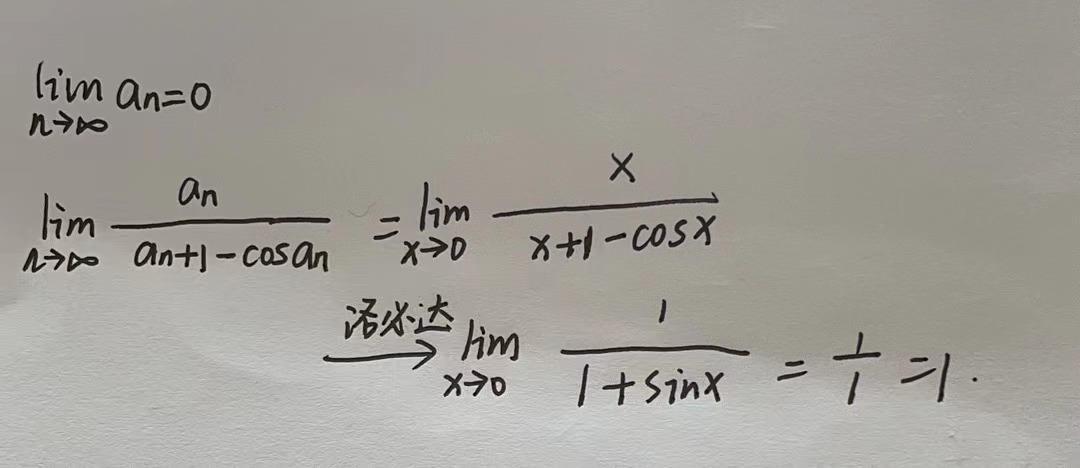 lim_{n→∞} a_n=0
lim_{n→∞} \frac{a_n}{a_n+1-cosa_n} = lim_{x→0} \frac{x}{x+1-cosx}
\xrightarrow{洛必达} lim_{x→0} \frac{1}{1+sinx} = \frac{1}{1} =1.